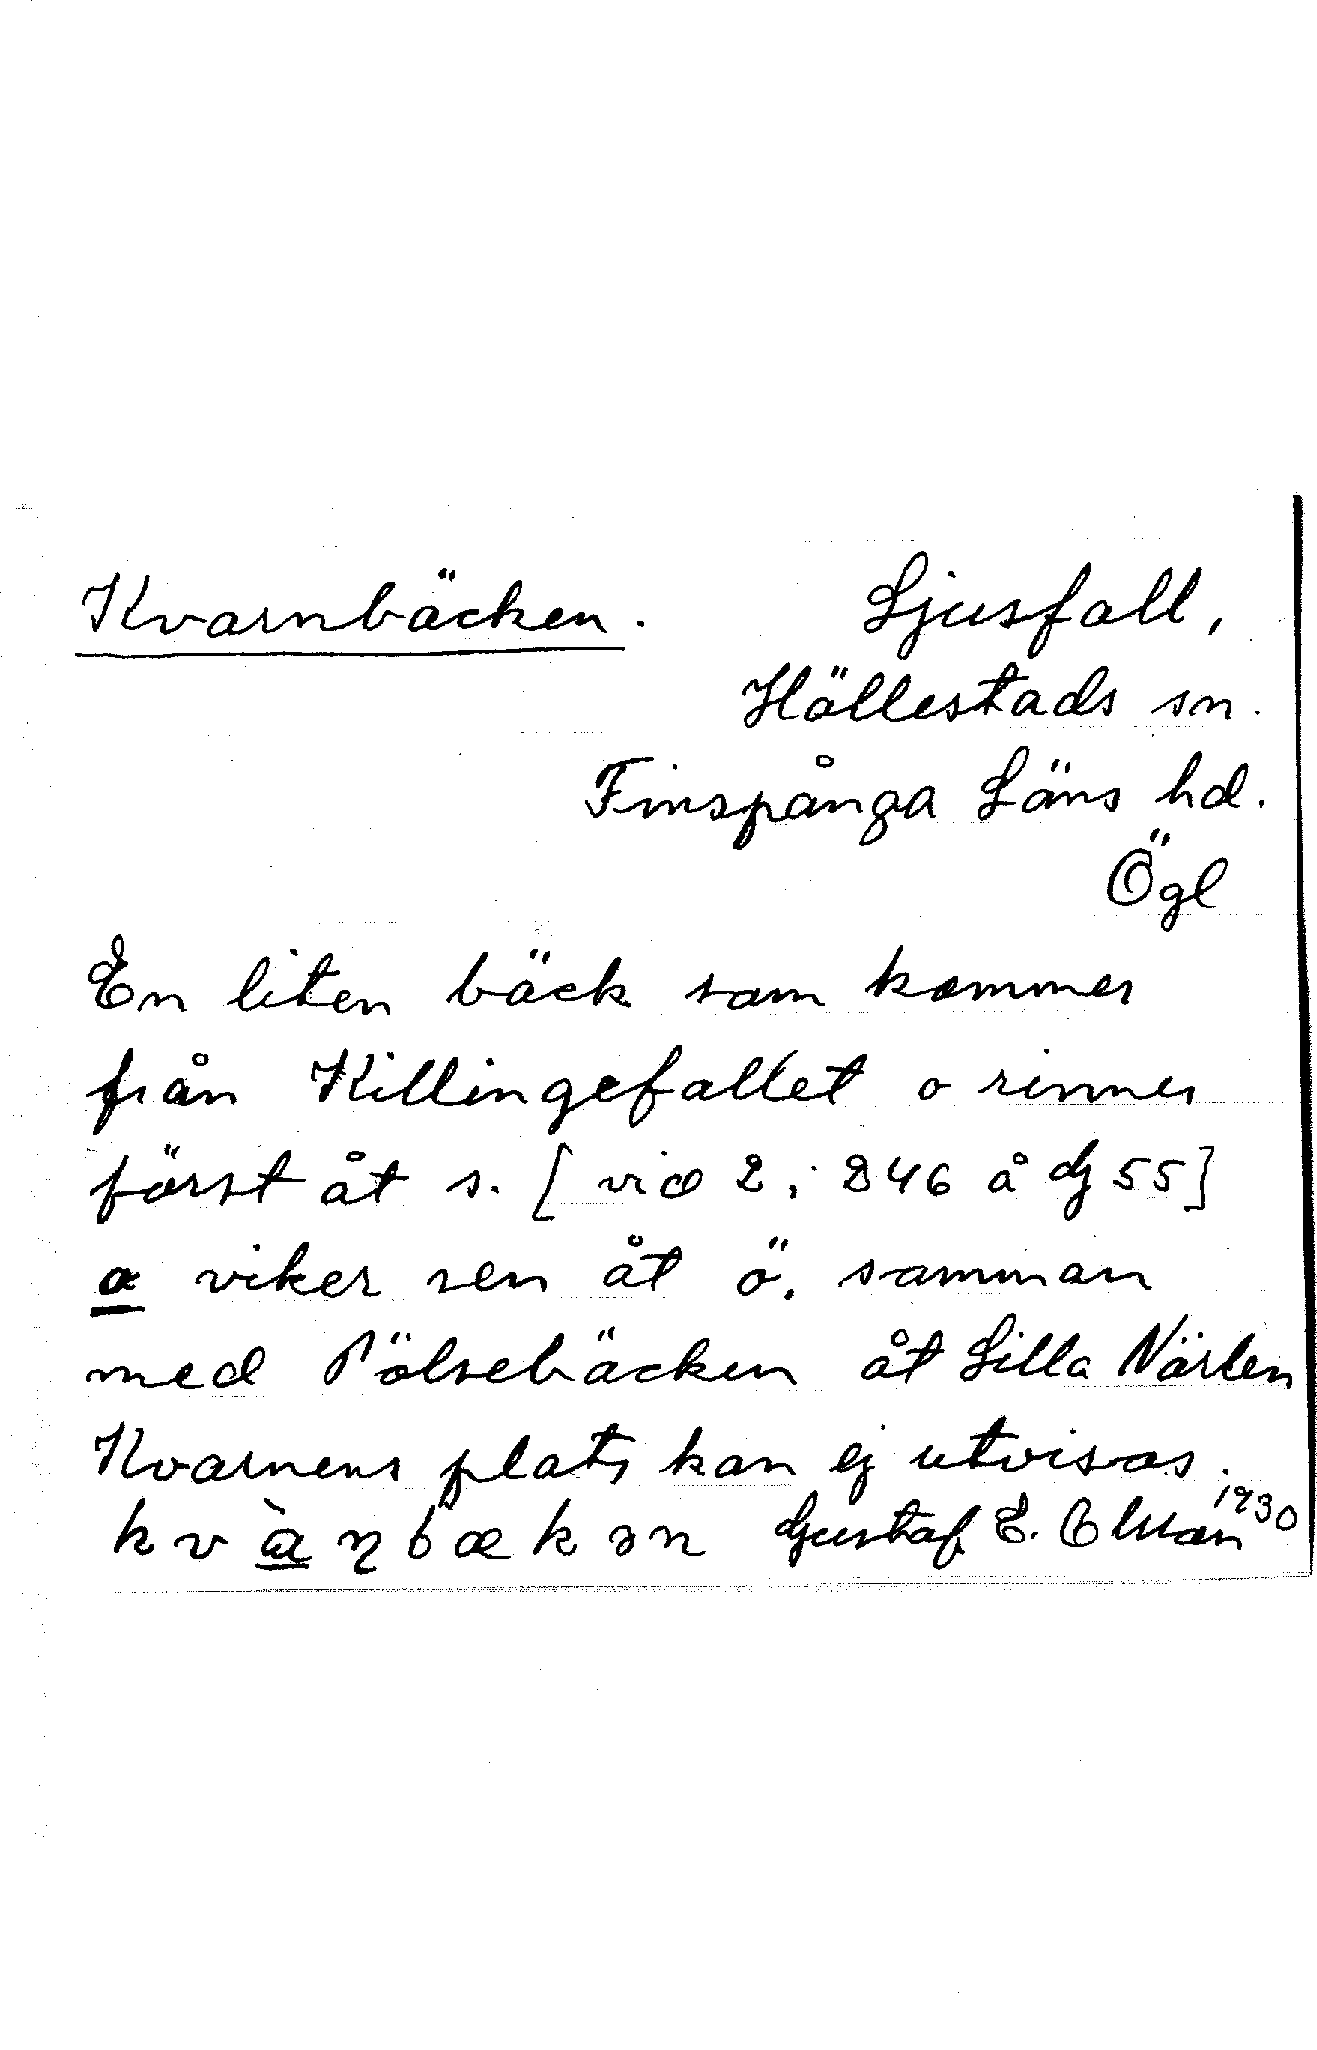 Kvarnbäcken. Ljusfall,
Hällestads sn.
Finspånga Läns hd.
Ögl
En liten bäck som kommer
från Killingefallet o rinner
först åt s. [vid 2 i 246 å G 55]
o viker sen åt ö. samman
med Pölsebäcken åt Lilla Närlen
Kvarnens plats kan ej utvisas.
kvàɳbækən Gustaf E. 1930